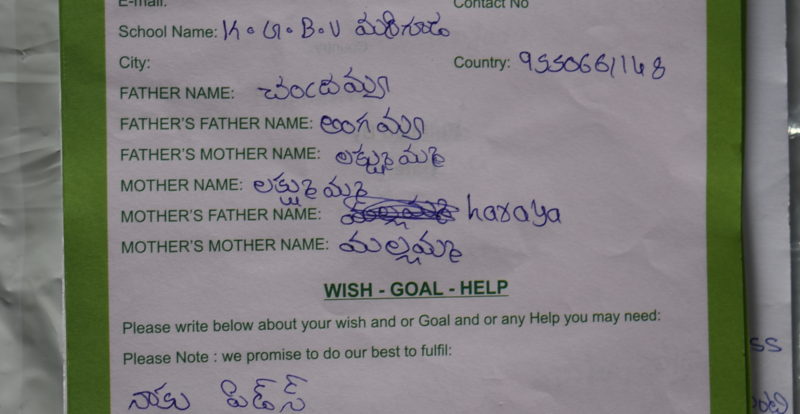 E-mail:
Contact No
School Name: K.G.B.V మరిగూడ
City:
Country: 9550661148
FATHER NAME: చంద్రమ్యా
FATHER'S FATHER NAME: అంగమ్యా
FATHER'S MOTHER NAME: లక్ష్మమ్మ
MOTHER NAME: లక్ష్మమ్మ
MOTHER'S FATHER NAME: haraya
MOTHER'S MOTHER NAME: మల్లమ్మ
WISH - GOAL - HELP
Please write below about your wish and or Goal and or any Help you may need:
Please Note : we promise to do our best to fulfil:
నాకు
ss